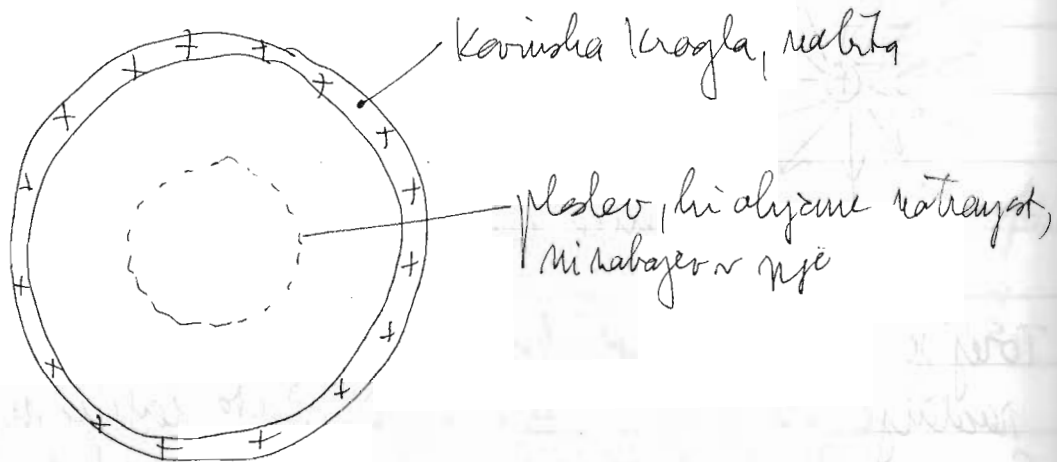 Kovinska krogla, nabita
ploskev, ki objame notranjost,
ni nabojev v njej
Torej je